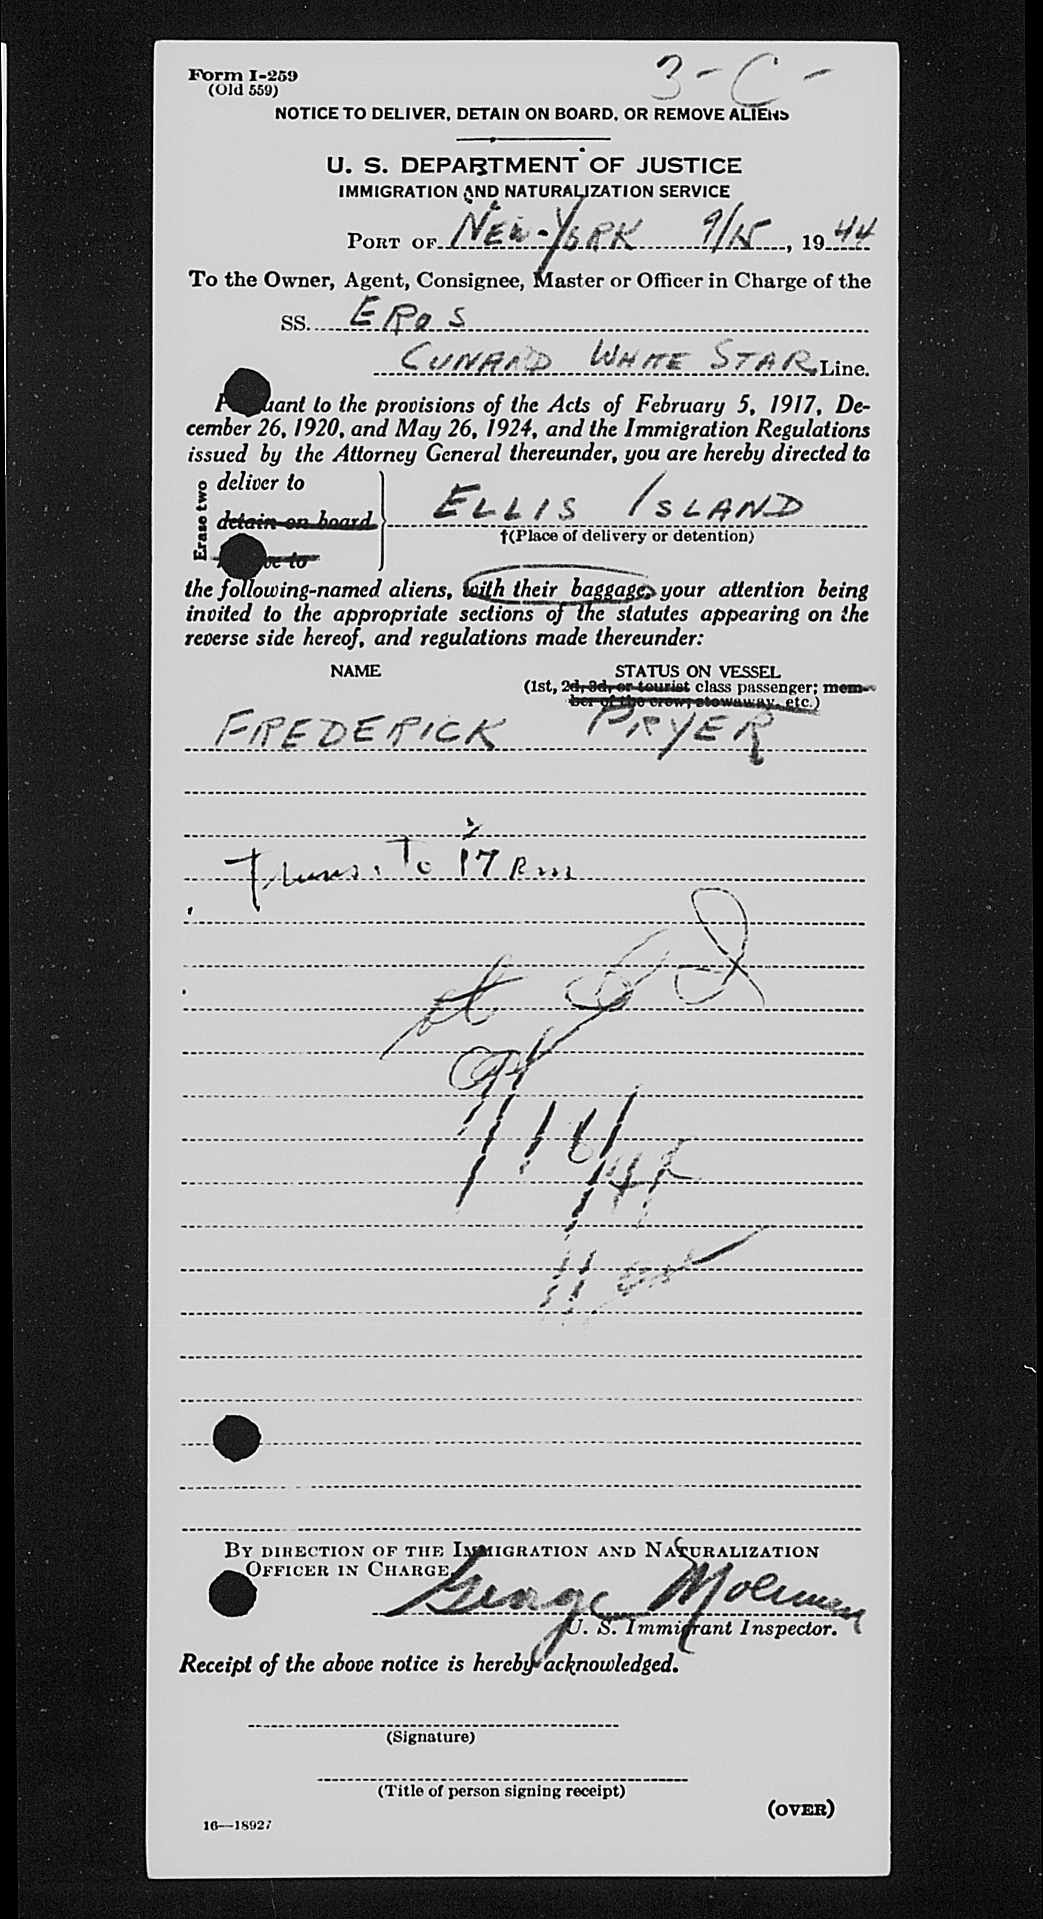 Form I-259
(Old 559)
3 - C -
NOTICE TO DELIVER, DETAIN ON BOARD, OR REMOVE ALIENS
U. S. DEPARTMENT OF JUSTICE
IMMIGRATION AND NATURALIZATION SERVICE
PORT OF NEW-YORK 9/15, 1944
To the Owner, Agent, Consignee, Master or Officer in Charge of the
SS. EROS
CUNARD WHITE STAR Line.
uant to the provisions of the Acts of February 5, 1917, De-
cember 26, 1920, and May 26, 1924, and the Immigration Regulations
issued by the Attorney General thereunder, you are hereby directed to
Erase two
deliver to
detain on board
ELLIS ISLAND
†(Place of delivery or detention)
the following-named aliens, with their baggage, your attention being
invited to the appropriate sections of the statutes appearing on the
reverse side hereof, and regulations made thereunder:
NAME STATUS ON VESSEL
(1st, 2d, 3d, or tourist class passenger; mem-
ber of the crew, stowaway, etc.)
FREDERICK PRYER
To 17
BY DIRECTION OF THE IMMIGRATION AND NATURALIZATION
OFFICER IN CHARGE.
George
U. S. Immigrant Inspector.
Receipt of the above notice is hereby acknowledged.
(Signature)
(Title of person signing receipt)
(OVER)
16—18927